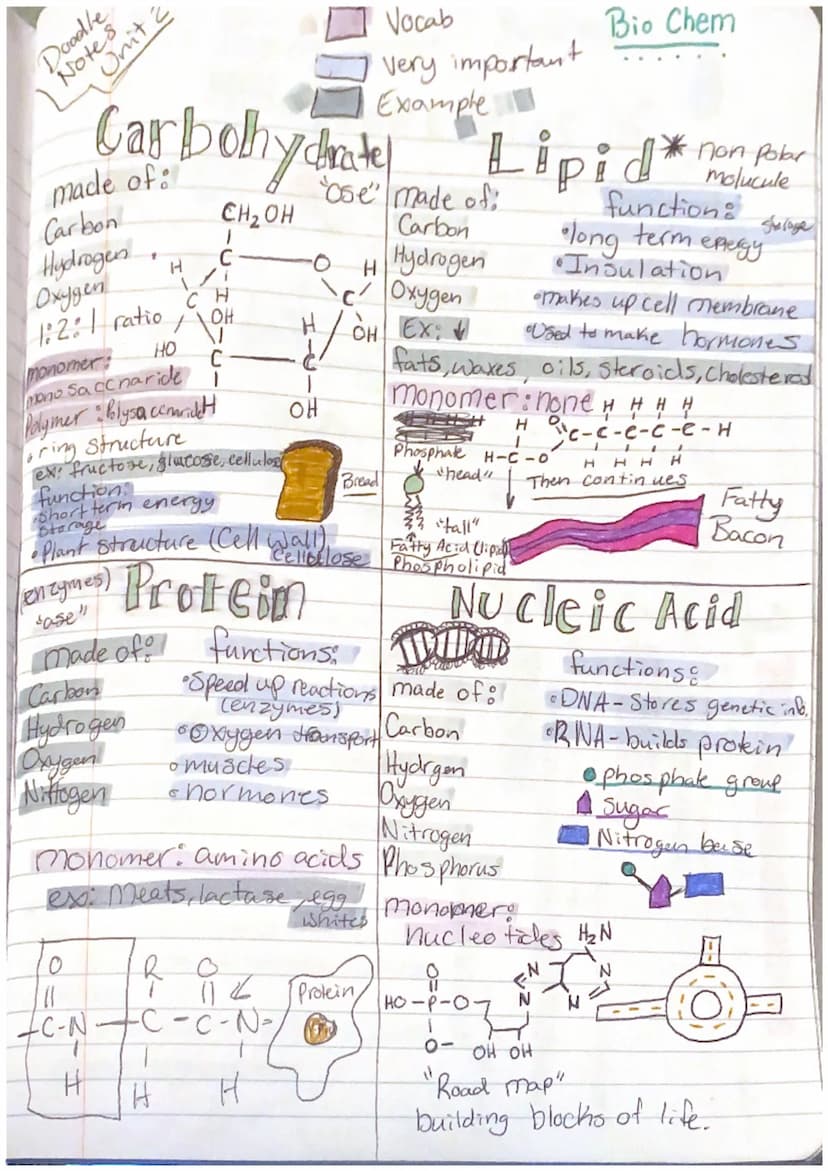 Doodle
Notes
Unit 2
Vocab
very important
Example
Bio Chem
Carbohydrate
"ose"
made of:
Carbon
Hydrogen
Oxygen
1:2:1 ratio
monomer:
monosaccharide
Polymer: Polysaccharide
• ring structure
ex: fructose, glucose, cellulose
function:
• Short term energy
storage
• Plant structure (Cell Wall)
Cellulose
CH2OH
C O
H H
C H C
OH H OH
HO
C C
H OH
Bread
Lipid* non Polar
molucule
made of:
Carbon
Hydrogen
Oxygen
Ex: ↓
function:
• long term energy
storage
• Insulation
• makes up cell membrane
• Used to make hormones
fats, waxes, oils, steroids, cholesterol
monomer: none
H H H H
H O
C-C-C-C-C-H
H-C-O
H H H H
Then continues
Phosphate
"head"
"tail"
Fatty Acid (lipid)
Phospholipid
Fatty
Bacon
(enzymes)
"ase"
Protein
made of:
Carbon
Hydrogen
Oxygen
Nitrogen
functions:
• Speed up reactions
(enzymes)
• Oxygen transport
• muscles
• hormones
monomer: amino acids
exs: Meats, lactase, egg
whites
O R O
-C-N-C-C-N-
H H H
Protein
Nucleic Acid
made of:
Carbon
Hydrgen
Oxygen
Nitrogen
Phosphorus
functions:
• DNA-Stores genetic info.
• RNA-builds protein
phosphate group
Sugar
Nitrogen base
monomer:
nucleotides
H2N
N N
N N
O
HO-P-O
O-
OH OH
"Road map"
building blocks of life.